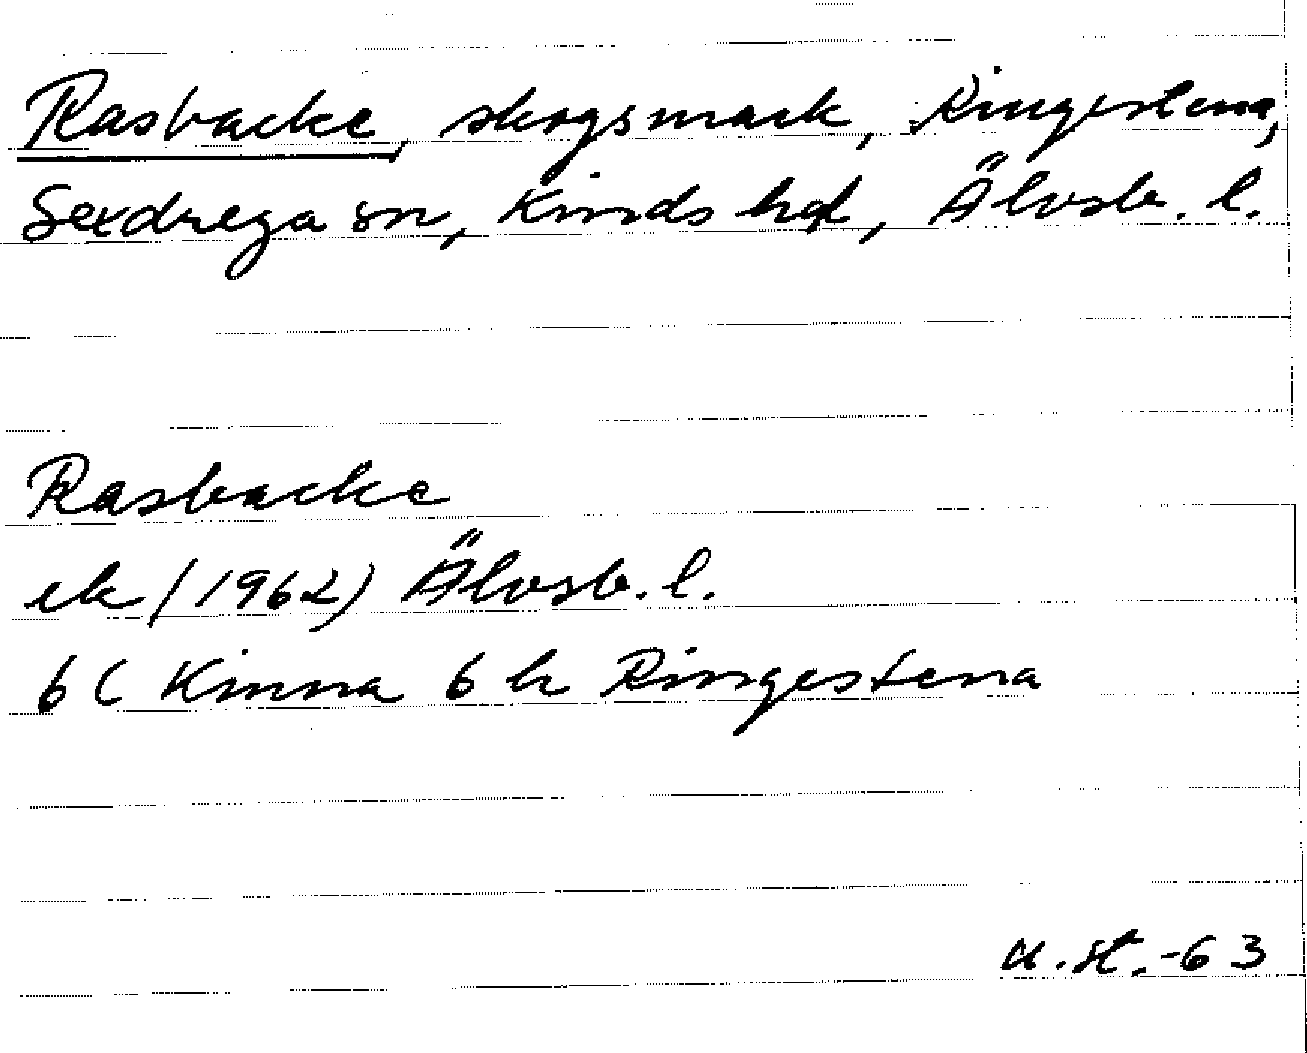 Rasbacke, skogsmark, Ringestena,
Sexdrega sn, Kinds hd, Älvsb. l.
Rasbacke
ek (1962) Älvsb. l.
6 C Kinna 6 h Ringestena
u.st.-63